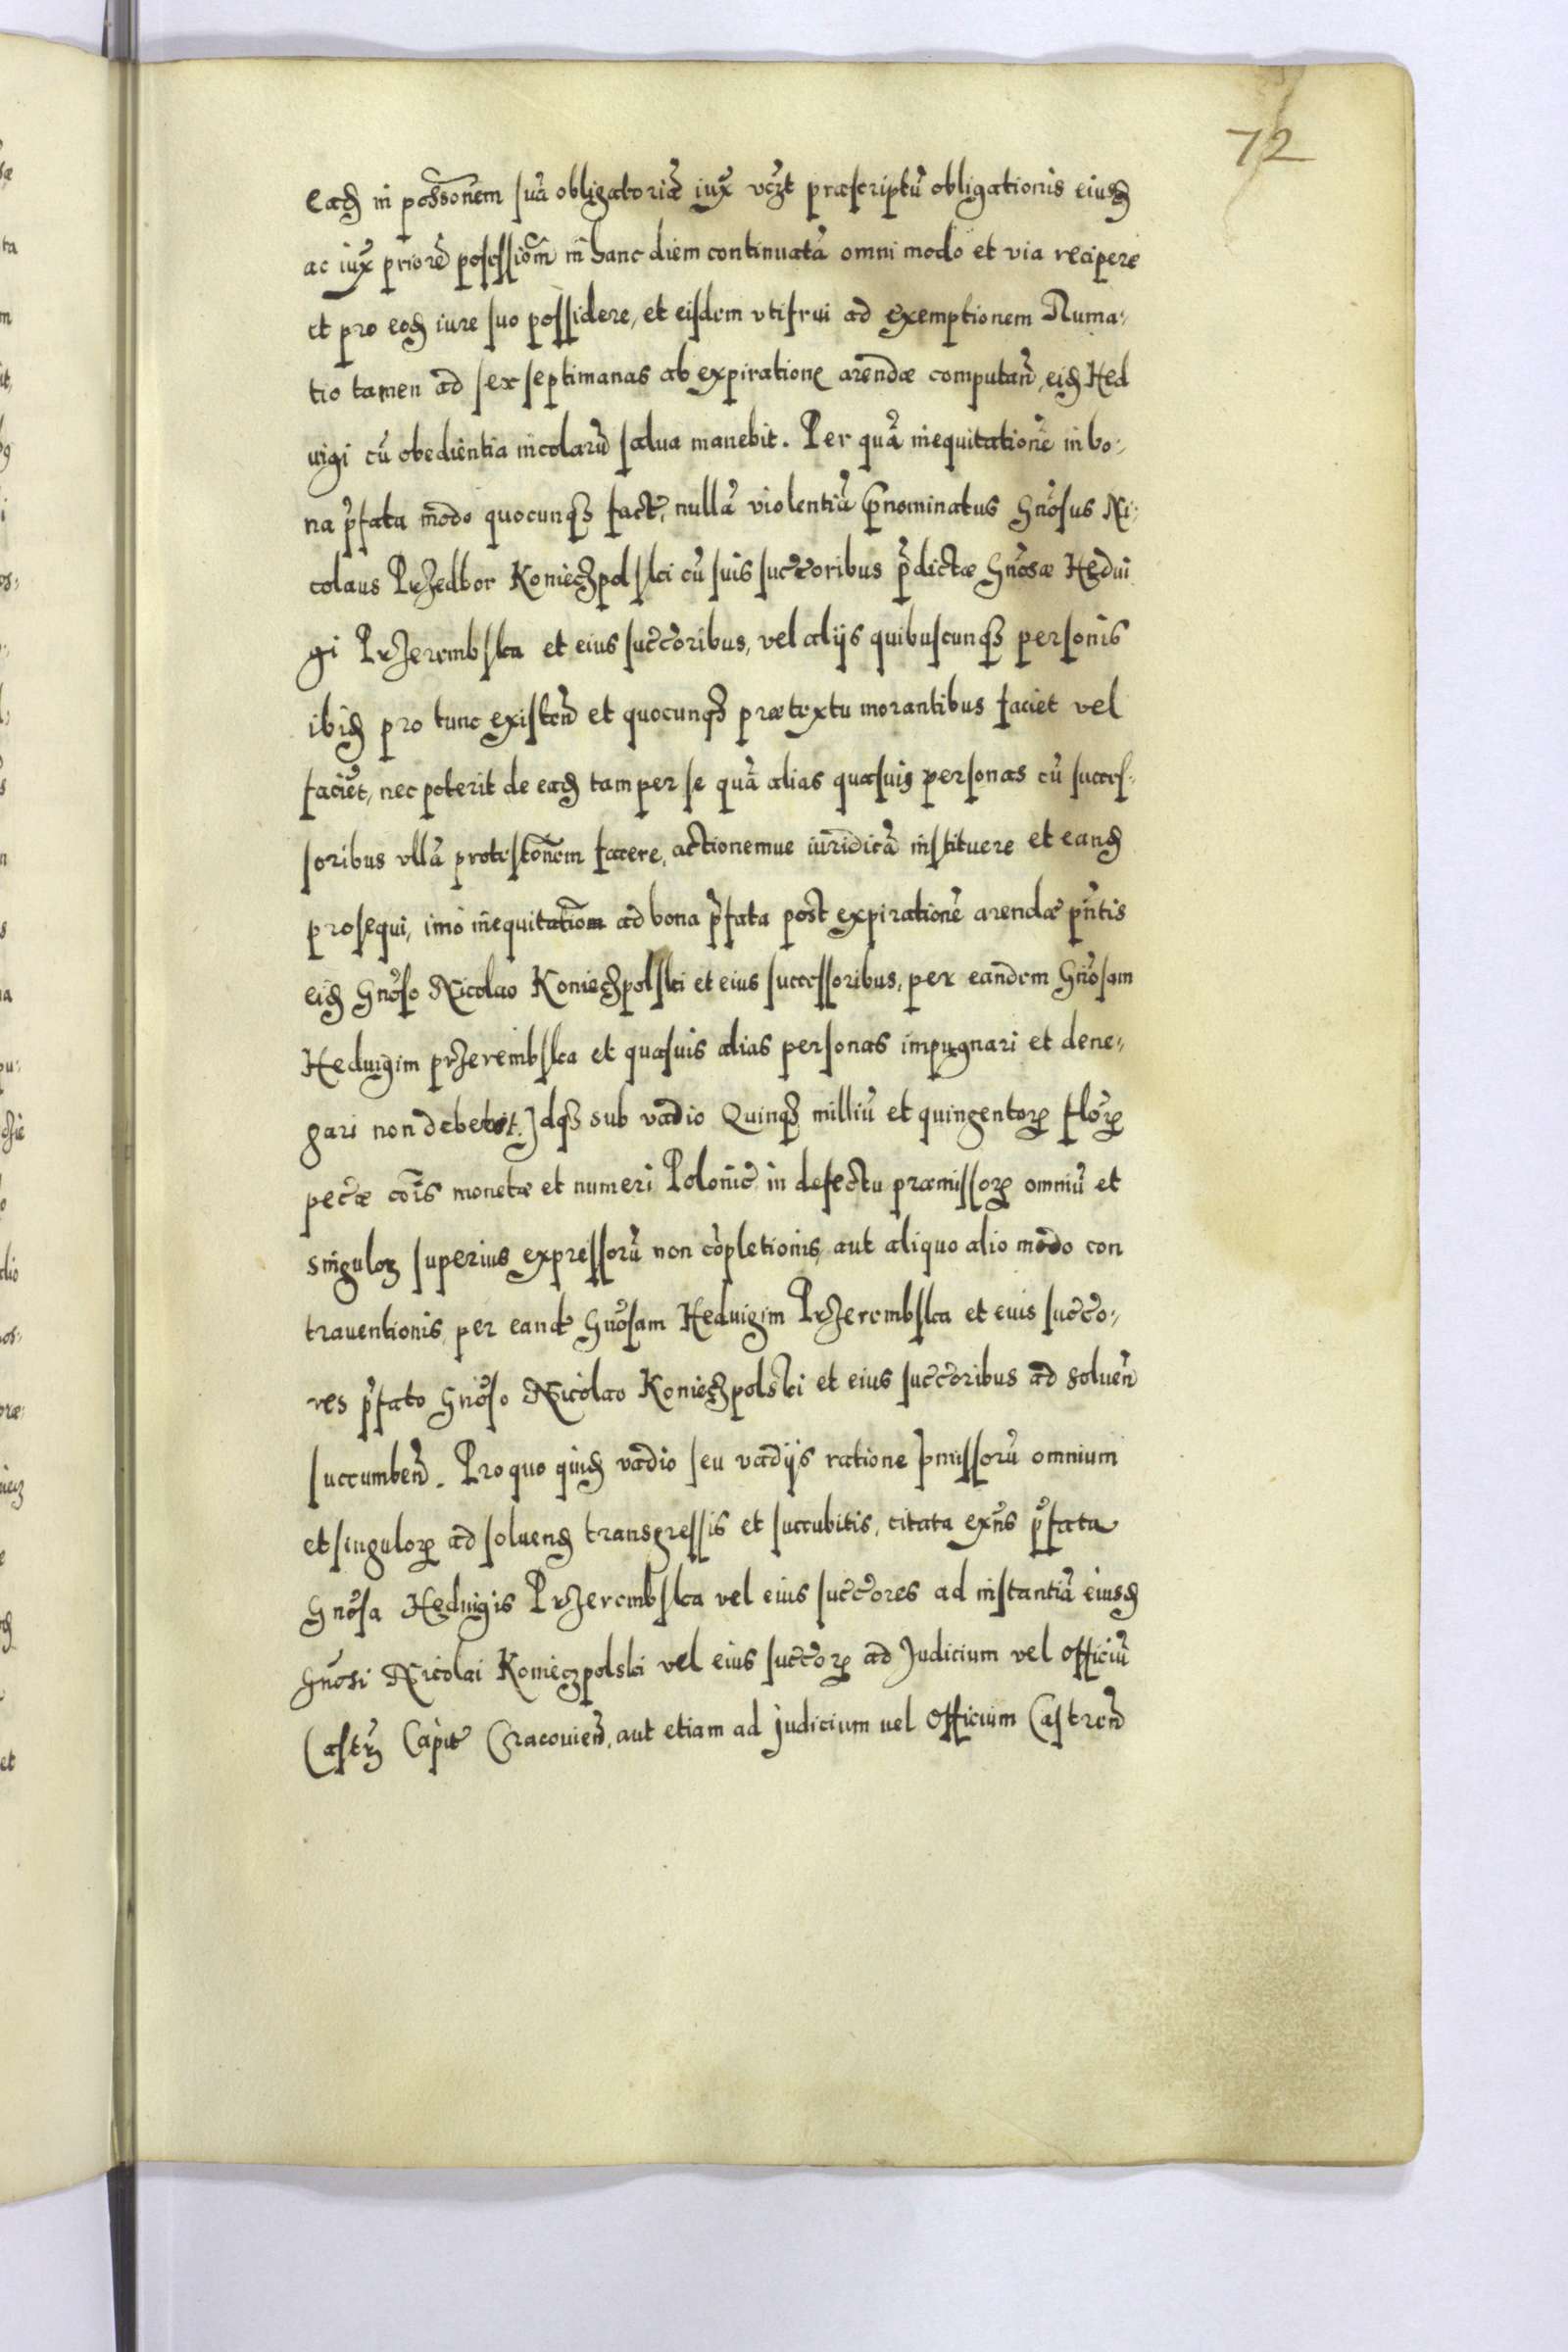 72
eadꝫ in possonem̃ suã obligatoriã iux̃ vczt præscriptũ obligationis eiusdꝫ
ac iux̃ priorẽ posessiom̃ in hanc diem continuatã omni modo et via recipere
et pro eodꝫ iure suo possidere, et eisdem vtifrui ad exemptionem Numa-
tio tamen ad sex septimanas ab expiratione arendæ computañ, eidꝫ Hed
uigi cũ obedientia incolarũ salua manebit. Per quã inequitationẽ in bo-
na p̃fata modo quocunqꝫ fact̃, nullã violentiã p̃nominatus Gñosus Ni-
colaus Przedbor Konieczpolski cũ suis succ̃oribus p̃dictæ Gñosæ Hedui
gi Przerembska et eius succ̃oribus, vel alijs quibuscunqꝫ personis
ibidꝫ pro tunc existeñ et quocunqꝫ prætextu morantibus faciet vel
faciẽt, nec poterit de eadꝫ tam per se quã alias quasuis personas cũ succes-
soribus vllã protestonem̃ facere, actionemue iuridicã instituere et eandꝫ
prosequi, imo inequitatiom̃ ad bona p̃fata post expirationẽ arendæ pñtis
eidꝫ Gñoso Nicolao Konieczpolski et eius successoribus, per eandem Gñosam
Heduigim przerembska et quasuis alias personas impugnari et dene-
gari non debebit. Idqꝫ sub vadio Quinqꝫ milliũ et quingentorꝝ flõrꝝ
pecc̃æ cõis monetæ et numeri Polonic̃ in defectu præmissorꝝ omniũ et
singuloꝝ superius expressorũ non cõpletionis, aut aliquo alio modo con
trauentionis, per eand̃ Gñosam Heduigim Przerembska et euis succ̃o-
res p̃fato Gñoso Nicolao Konieczpolski et eius succ̃oribus ad solueñ
succumbeñ. Pro quo quidꝫ vadio seu vadijs ratione p̃missorũ omnium
et singulorꝝ ad soluendꝫ transgressis et succubitis, citata exñs p̃fata
Gñosa Heduigis Przerembska vel eius succ̃ores ad instantiã eiusdꝫ
Gñosi Nicolai Koniecpolski vel eius succ̃orꝝ ad Judicium vel Officiũ
Castrꝫ Capit̃ Cracouieñ, aut etiam ad judicium uel Officium Castreñ